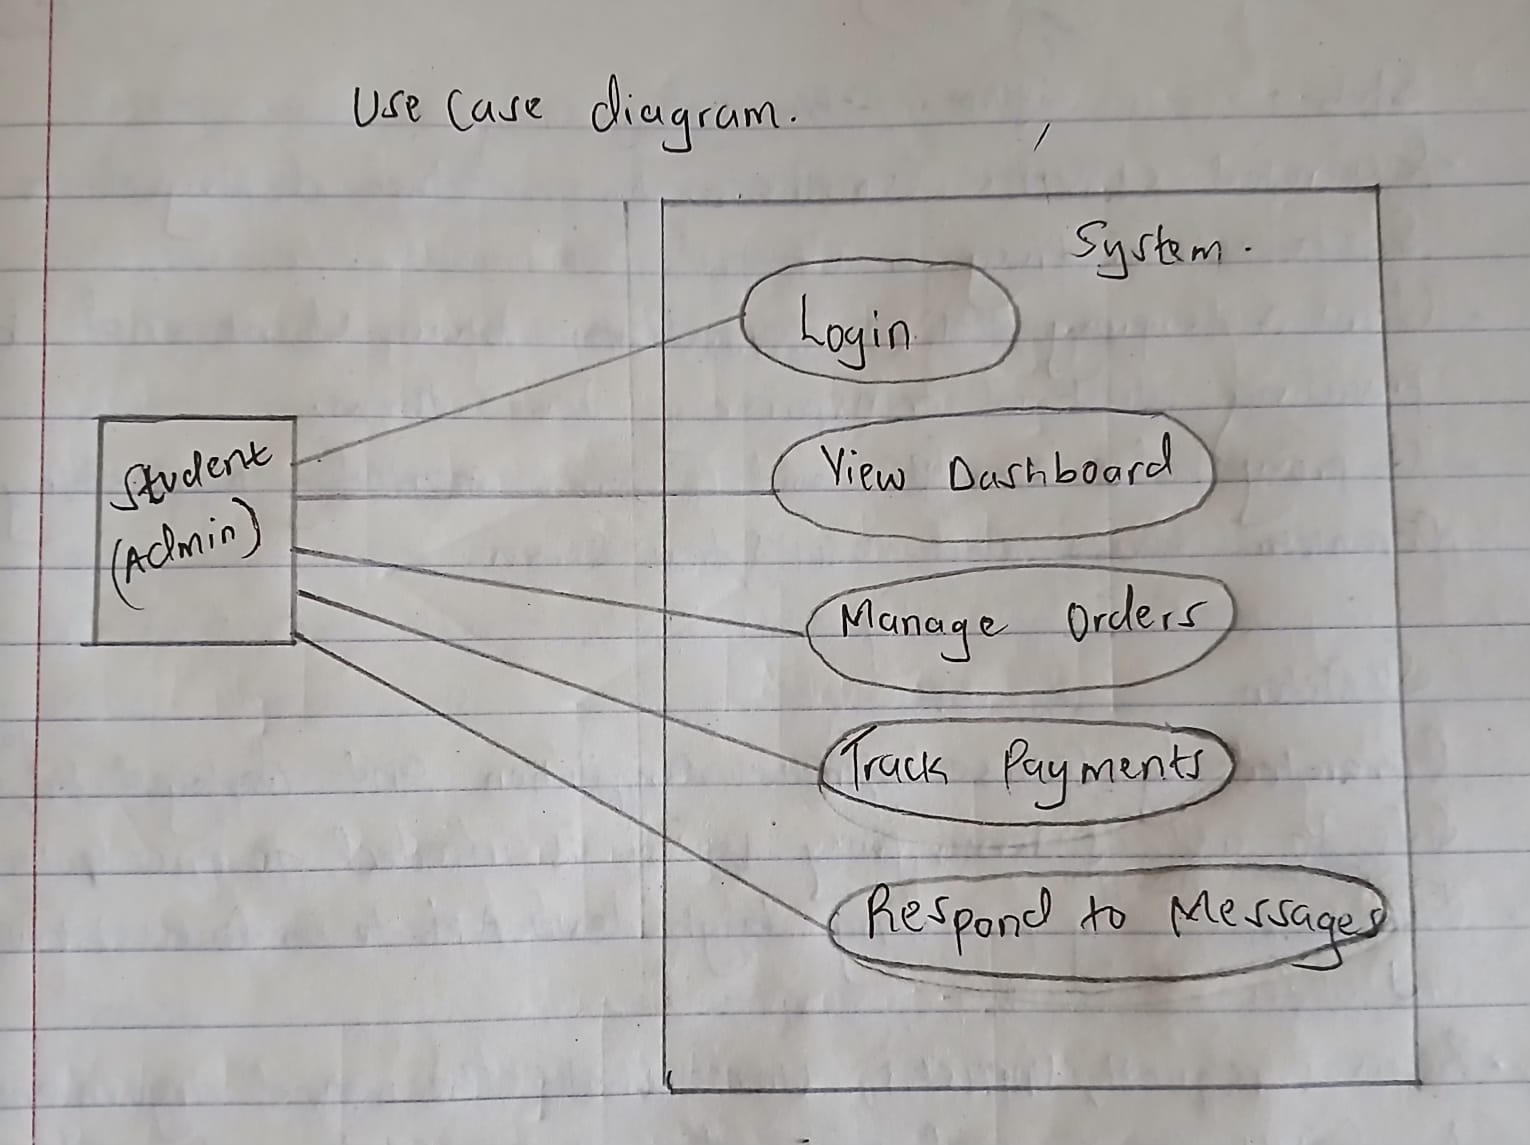 Use Case diagram.
System.
Login
Student
(Admin)
View Dashboard
Manage Orders
Track Payments
Respond to Messages